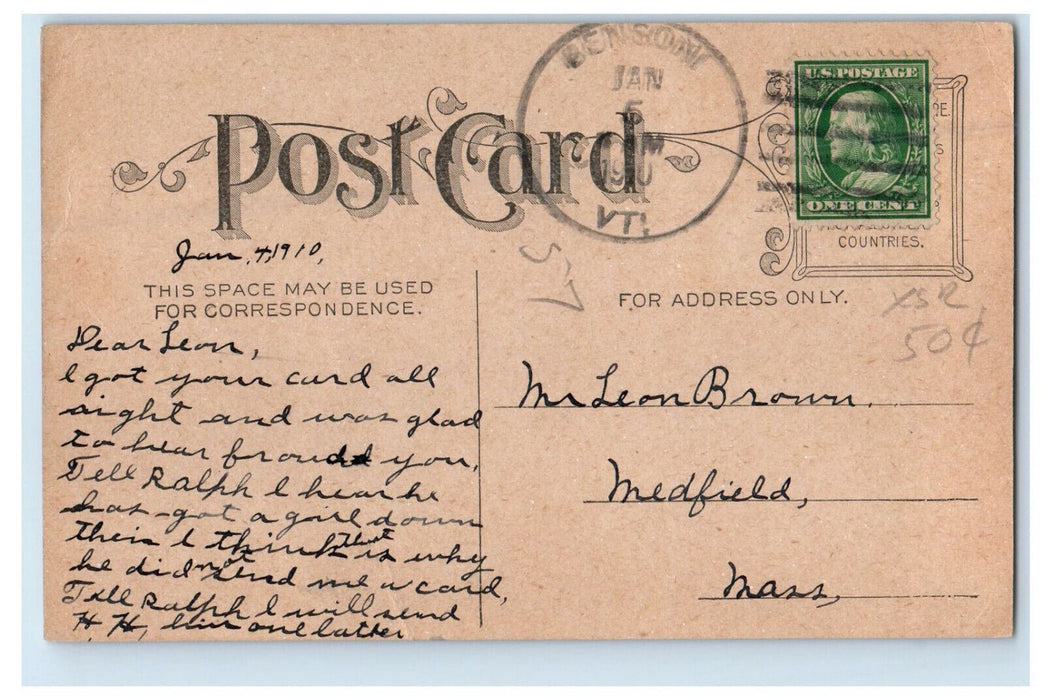 BENSON
JAN
5
M
1910
VT.
U.S. POSTAGE
ONE CENT
Post Card
COUNTRIES.
Jan, 4, 1910,
THIS SPACE MAY BE USED
FOR CORRESPONDENCE.
FOR ADDRESS ONLY.
57
XSR
50¢
Dear Leon,
I got your card all
right and was glad
to hear from you.
Tell Ralph I hear he
has got a girl down
their I think that is why
he did not send me a card,
Tell Ralph I will send
H, H, him one latter
Mr Leon Brown.
Medfield,
Mass,